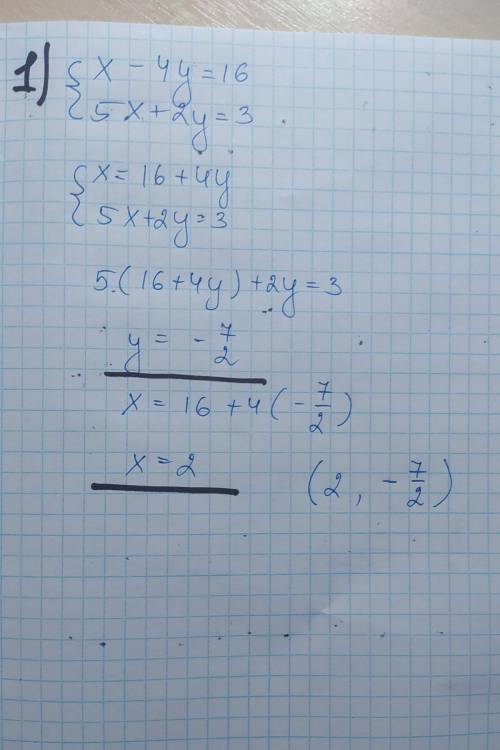 1) { x - 4y = 16
5x + 2y = 3
{ x = 16 + 4y
5x + 2y = 3
5·(16 + 4y) + 2y = 3
y = - 7/2
x = 16 + 4(- 7/2)
x = 2 (2, - 7/2)